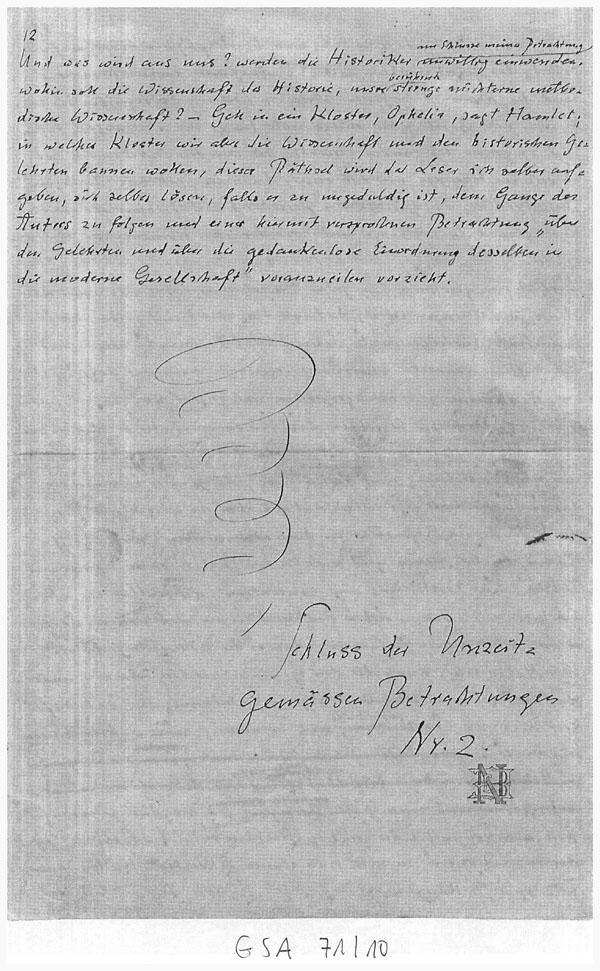 12
am Schlusse meiner Betrachtung
Und was wird aus uns? werden die Historiker unwillig einwenden,
berühmte
wohin soll die Wissenschaft der Historie, unsre strenge nüchterne metho-
dische Wissenschaft? – Geh in ein Kloster, Ophelia, sagt Hamlet;
in welches Kloster wir aber die Wissenschaft und den historischen Ge-
lehrten bannen wollen, dieses Räthsel wird der Leser sich selber auf-
geben, sich selber lösen, falls er zu ungeduldig ist, dem Gange des
Autors zu folgen und einer hiermit versprochnen Betrachtung „über
den Gelehrten und über die gedankenlose Einordnung desselben in
die moderne Gesellschaft" voranzueilen vorzieht.
Schluss der Unzeit-
gemässen Betrachtungen
Nr. 2.
GSA 71/10